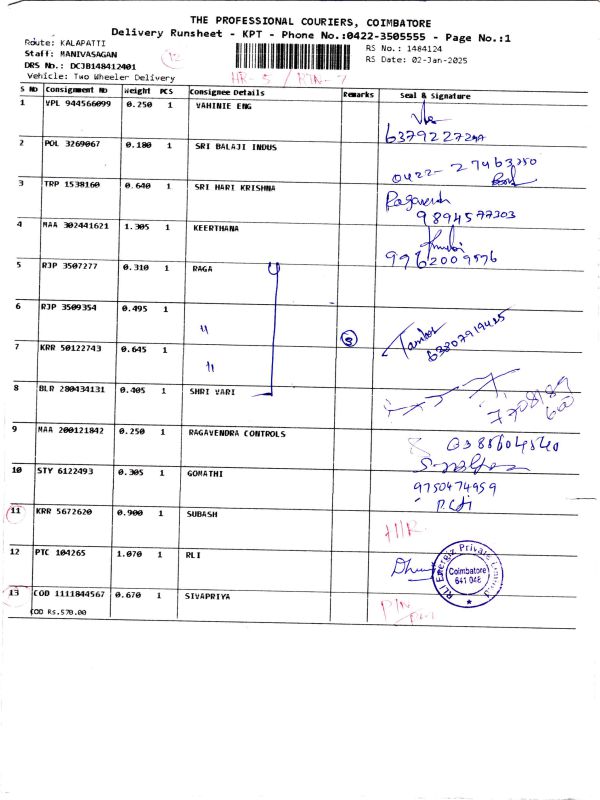 THE PROFESSIONAL COURIERS, COIMBATORE
Delivery Runsheet - KPT - Phone No.:0422-3505555 - Page No.:1
Route: KALAPATTI
RS No.: 1484124
Staff: MANIVASAGAN
12
RS Date: 02-Jan-2025
DRS No.: DCJB148412401
Vehicle: Two Wheeler Delivery
S No Consignment No Weight PCS Consignee Details Remarks Seal & Signature
1 VPL 944566099 0.250 1 VAHINIE ENG
2 POL 3269067 0.180 1 SRI BALAJI INDUS
0422-27463250
3 TRP 1538160 0.640 1 SRI HARI KRISHNA
9894577303
4 MAA 302441621 1.305 1 KEERTHANA
9962009576
5 RJP 3507277 0.310 1 RAGA
6 RJP 3509354 0.495 1 "
7 KRR 50122743 0.645 1 "
63807919425
8 BLR 280434131 0.405 1 SHRI VARI
9 MAA 200121842 0.250 1 RAGAVENDRA CONTROLS
10 STY 6122493 0.305 1 GOMATHI
9750474959
11 KRR 5672620 0.900 1 SUBASH
12 PTC 104265 1.070 1 RLI
RLI Energiz Private Limited
Coimbatore
641 048
13 COD 1111844567 0.670 1 SIVAPRIYA
COD Rs.570.00